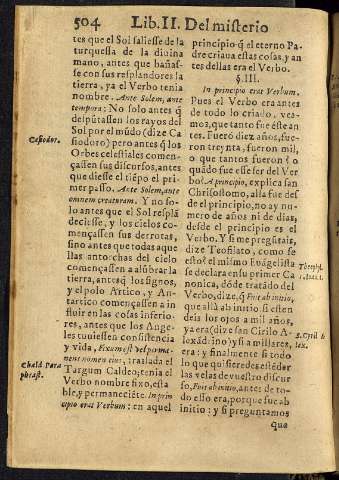 504 Lib. II. Del misterio
tes que el Sol saliesse de la
turquessa de la divina
mano, antes que bañas-
se con sus resplandores la
tierra, ya el Verbo tenia
nombre. Ante Solem, ante
tempora: No solo antes q̃
despũtassen los rayos del
Sol por el mũdo (dize Ca-
siodoro) pero antes q̃ los
Orbes celestiales comen-
çassen sus discursos, antes
que diesse el tiẽpo el pri-
mer passo. Ante Solem, ante
omnem creaturam. Y no so-
lo antes que el Sol resplã
deciesse, y los cielos co-
mençassen sus derrotas,
sino antes que todas aque
llas antorchas del cielo
començassen a alũbrar la
tierra, antes q̃ los signos,
y el polo Artico, y An-
tartico començassen a in
fluir en las cosas inferio-
res, antes que los Ange-
les tuviessen consistencia
y vida, Fixum est vel perma-
nens nomen eius, traslada el
Targum Caldeo, tenia el
Verbo nombre fixo, esta-
ble, y permaneciẽte. In prin
cipio erat Verbum: en aquel
Casiodor.
Chald. Para
phrast.
principio q̃ el eterno Pa-
dre criava estas cosas, y an
tes dellas era el Verbo.
§. III.
In principio erat Verbum.
Pues el Verbo era antes
de todo lo criado, vea-
mos, que tanto fue èste an
tes. Fuerõ diez años, fue-
ron treynta, fueron mil,
o que tantos fueron? o
quãdo fue esse ser del Ver
bo? A principio, explica san
Chrisostomo, alla fue des
de el principio, no ay nu-
mero de años ni de dias,
desde el principio es el
Verbo. Y si me pregũtais,
dize Teofilato, como fe
esto? el mismo Euãgelista
se declara en su primer Ca
nonica, dõde tratãdo del
Verbo, dize, q̃ Fuit ab initio,
que alla ab initio si esten
deis los ojos a mil años,
ya era (dize san Cirilo A-
lexãd:ino) y si a millares,
era: y finalmente si todo
lo que quisieredes estẽder
las velas de vuestro discur
so, Fuit ab initio, antes de to-
do esso era, porque fue ab
initio: y si preguntamos
que
Theophyl.
S. Cyril A
lex.